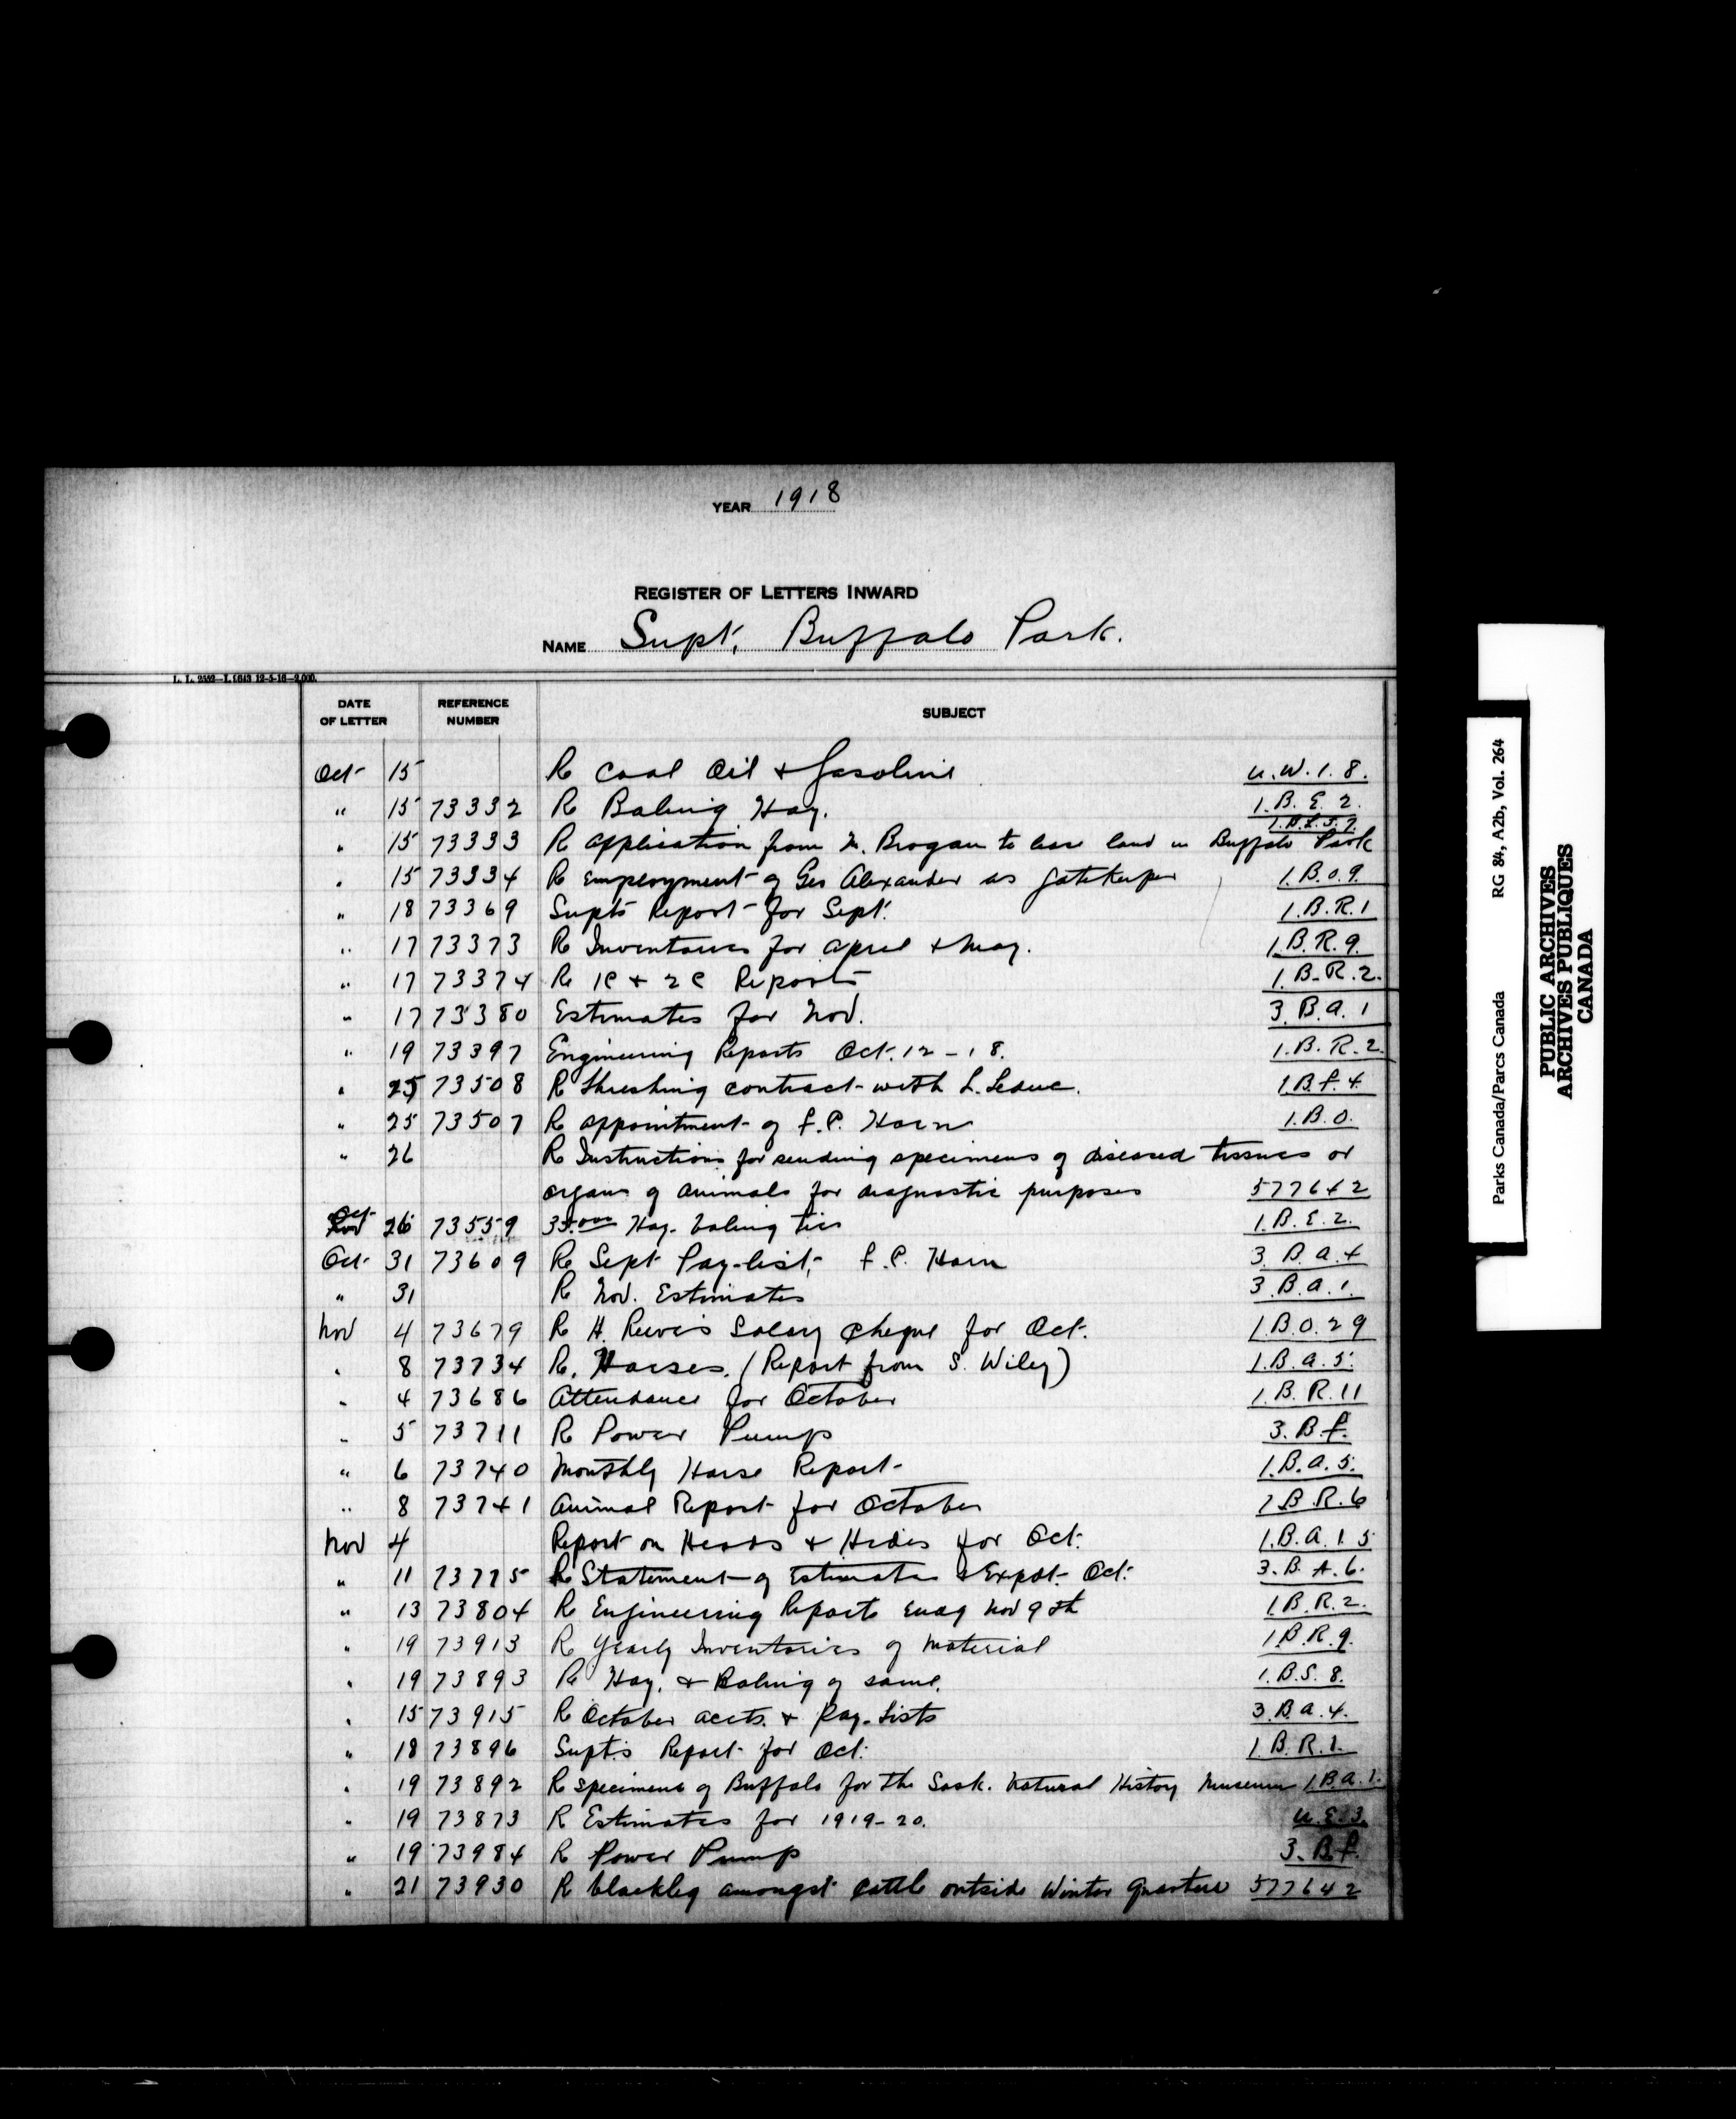 YEAR 1918
REGISTER OF LETTERS INWARD
NAME Supt. Buffalo Park.
L. L. 2552—L 9643 12-5-16—2,000.
DATE OF LETTER REFERENCE NUMBER SUBJECT
Oct 15 R Coal Oil & Gasoline U.W.1.8.
" 15 73332 R Baling Hay. 1.B.E.2.
1.B.L.5.7.
" 15 73333 R application from M. Brogan to lease land in Buffalo Park
" 15 73334 R Employment of Geo Alexander as gatekeeper 1.B.O.9
" 18 73369 Supts Report for Sept. 1.B.R.1
" 17 73373 R Inventories for April & May. 1.B.R.9.
" 17 73374 R 1C & 2C Reports 1.B.R.2.
" 17 73380 Estimates for Nov. 3.B.A.1
" 19 73397 Engineering Reports Oct. 12-18. 1.B.R.2.
" 25 73508 R Threshing contract with L. Leduc. 1.B.F.4.
" 25 73507 R appointment of F.P. Horn 1.B.O.
" 26 R Instructions for sending specimens of diseased tissues or
organs of animals for diagnostic purposes 577642
Oct 26 73559 35000 Hay-baling ties 1.B.E.2.
Oct 31 73609 R Sept Pay-list, F.P. Horn 3.B.A.4
" 31 R Nov. Estimates 3.B.A.1.
Nov 4 73679 R H. Reeve's Salary Cheque for Oct. 1.B.O.29
" 8 73734 R. Horses. (Report from S. Wiley) 1.B.A.5.
" 4 73686 Attendance for October 1.B.R.11
" 5 73711 R Power Pump 3.B.F.
" 6 73740 Monthly Horse Report 1.B.A.5.
" 8 73741 Animal Report for October 1.B.R.6
Nov 4 Report on Heads & Hides for Oct. 1.B.A.1.5
" 11 73775 R Statement of Estimates & Expdt. Oct. 3.B.A.6.
" 13 73804 R Engineering Reports endg Nov 9th 1.B.R.2.
" 19 73913 R Yearly Inventories of Material 1.B.R.9.
" 19 73893 R Hay, & Baling of same. 1.B.S.8.
" 15 73915 R October accts. & Pay-Lists 3.B.A.4.
" 18 73896 Supt's Report for Oct. 1.B.R.1.
" 19 73892 R specimens of Buffalo for the Sask. Natural History Museum 1.B.A.1.
" 19 73873 R Estimates for 1919-20. U.E.3.
" 19 73984 R Power Pump 3.B.F.
" 21 73930 R blackleg amongst cattle outside Winter Quarters 577642
Parks Canada/Parcs Canada RG 84, A2b, Vol. 264
PUBLIC ARCHIVES
ARCHIVES PUBLIQUES
CANADA